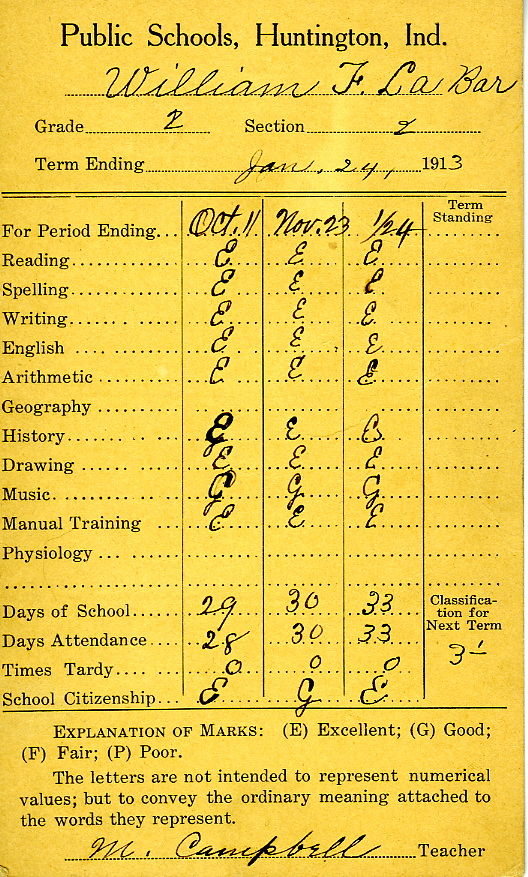 Public Schools, Huntington, Ind.
William F. La Bar
Grade 2 Section 2
Term Ending Jan. 24, 1913
Term
Standing
For Period Ending... Oct. 11 Nov. 23 1/24
Reading E E E
Spelling E E E
Writing E E E
English E E E
Arithmetic E E E
Geography
History E E
Drawing E E E
Music G G G
Manual Training E E E
Physiology
Days of School 29 30 33
Classifica-
tion for
Next Term
Days Attendance 28 30 33
3
Times Tardy 0 0 0
School Citizenship E G E
Explanation of Marks: (E) Excellent; (G) Good;
(F) Fair; (P) Poor.
The letters are not intended to represent numerical
values; but to convey the ordinary meaning attached to
the words they represent.
M. Campbell Teacher